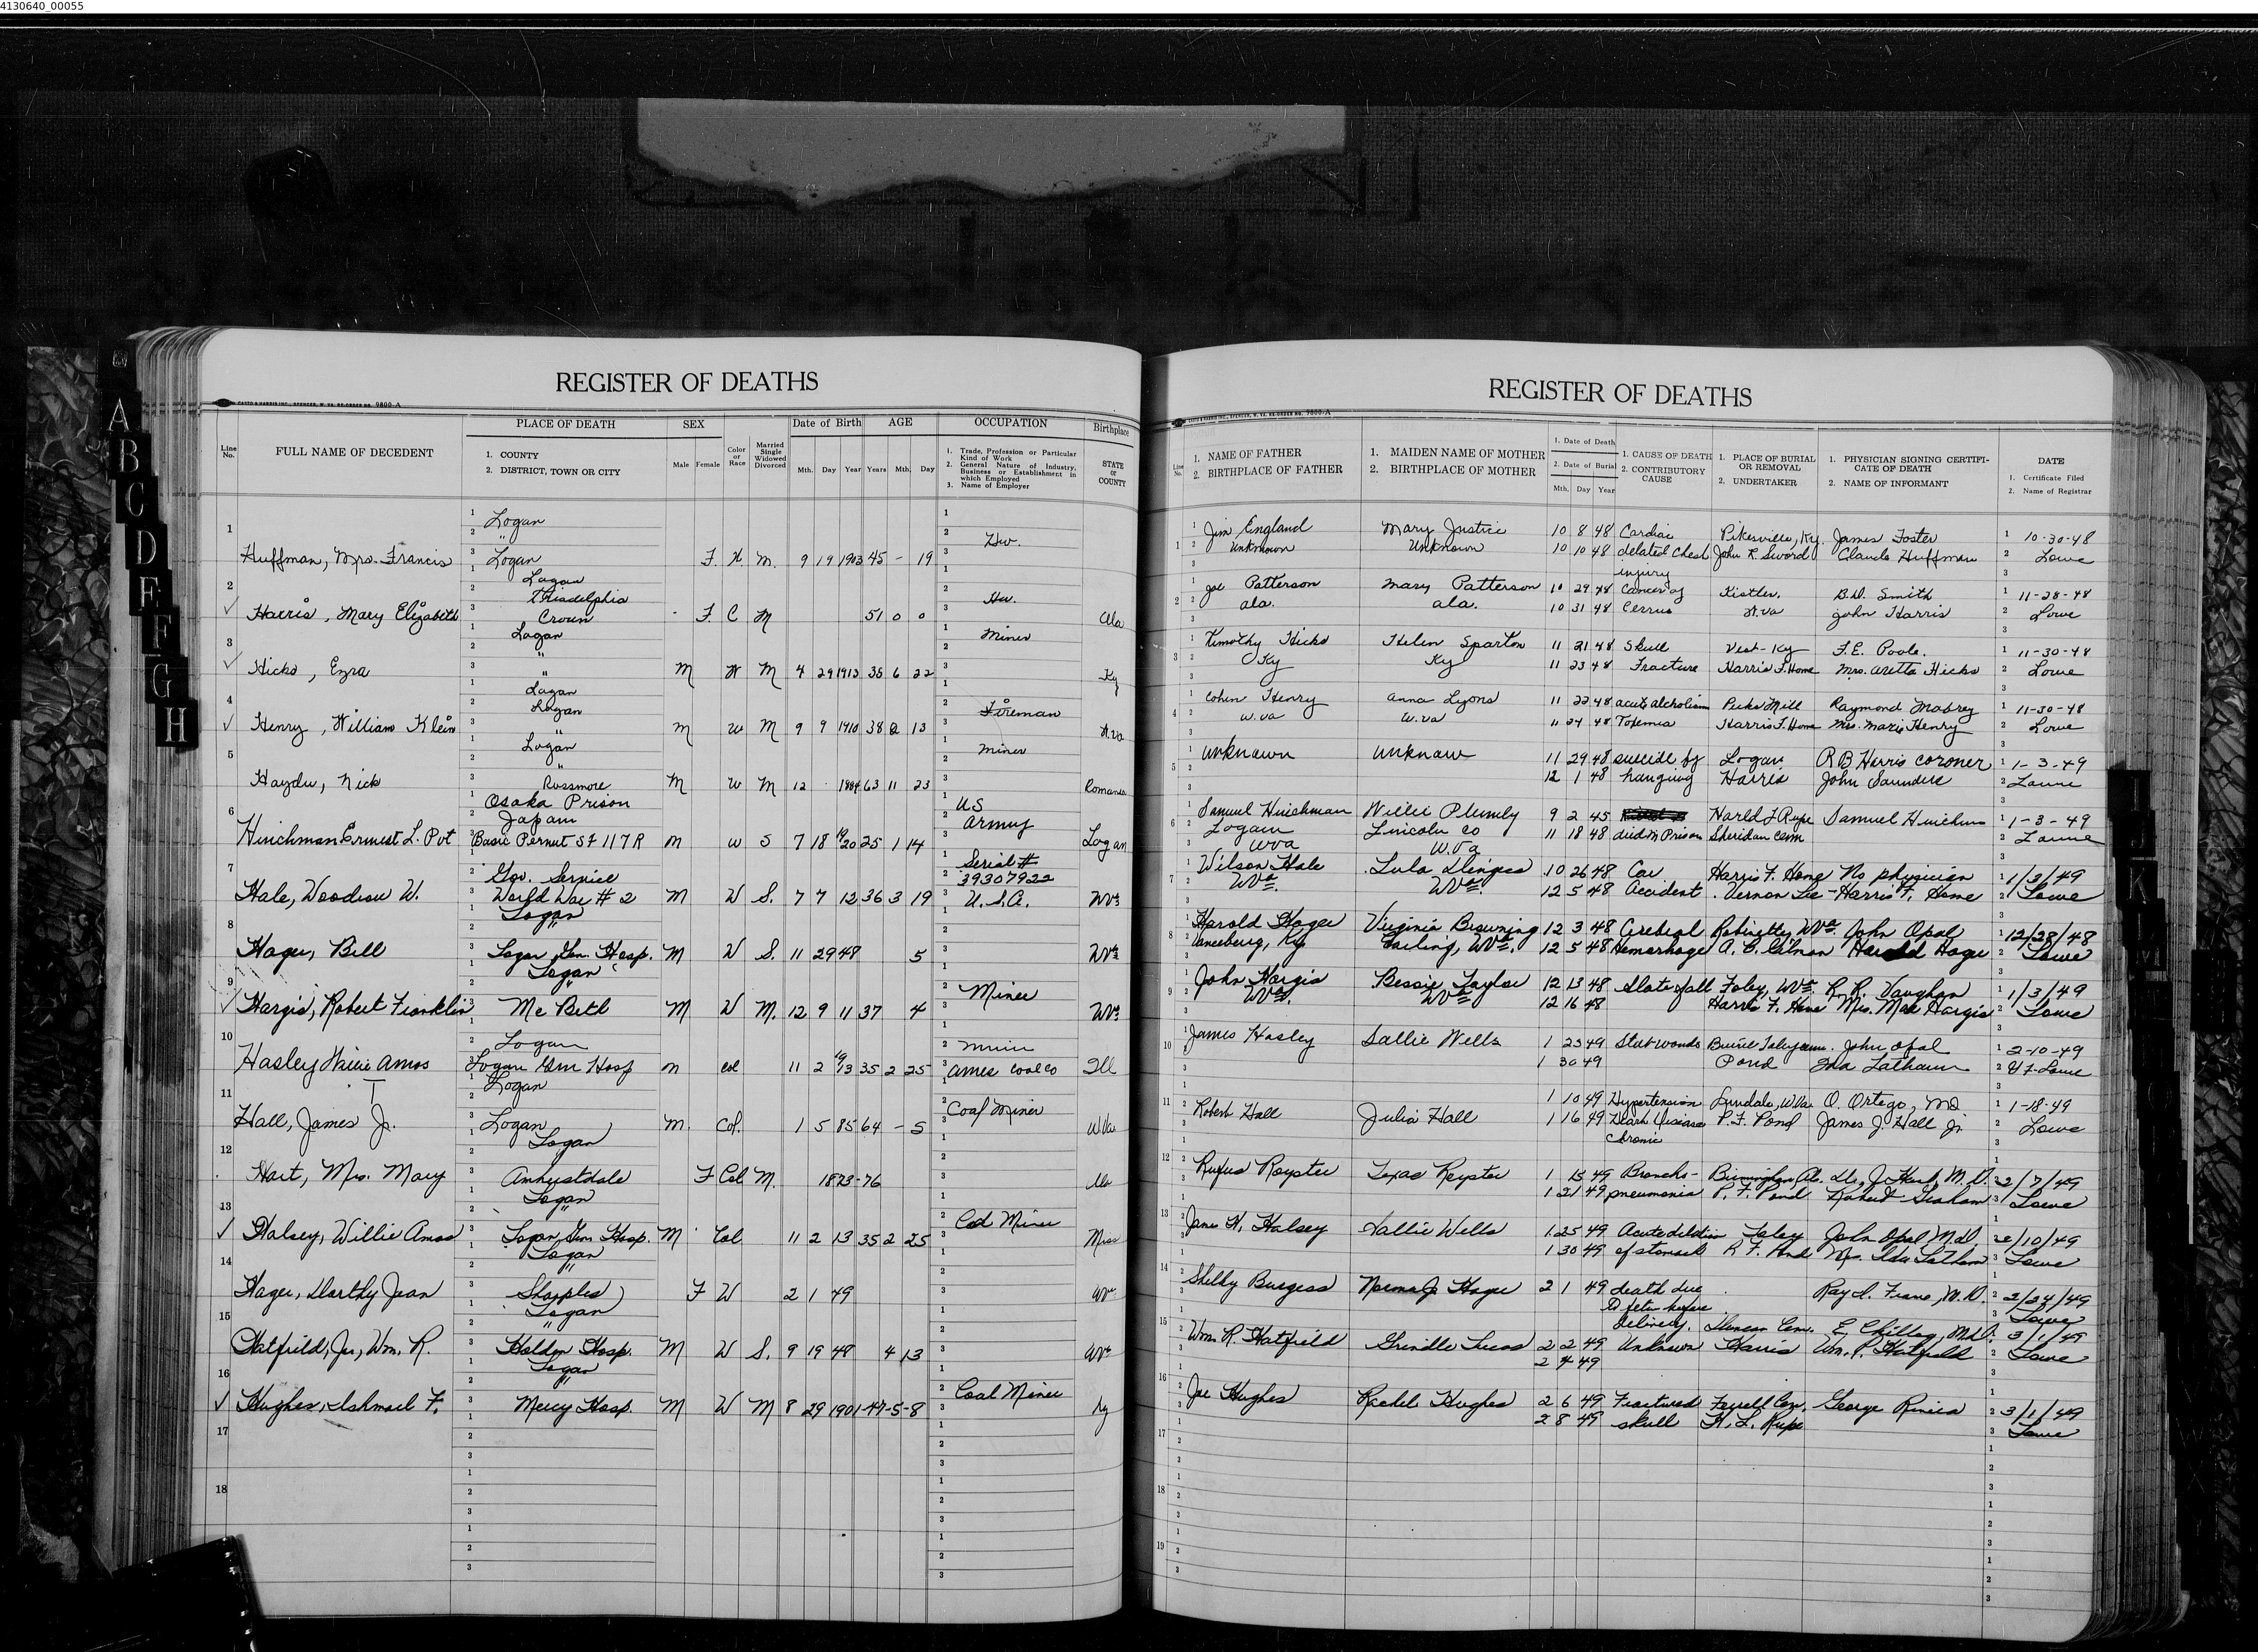 4130640_00055
REGISTER OF DEATHS
CASTO & HARRIS INC., SPENCER, W. VA. RE-ORDER NO. 9800-A
Line No.
FULL NAME OF DECEDENT
PLACE OF DEATH
1. COUNTY
2. DISTRICT, TOWN OR CITY
SEX
Male Female
Color or Race
Married Single Widowed Divorced
Date of Birth
Mth. Day Year
AGE
Years Mth. Day
OCCUPATION
1. Trade, Profession or Particular Kind of Work
2. General Nature of Industry, Business or Establishment in which Employed
3. Name of Employer
Birthplace
STATE or COUNTY
1 Huffman, Mrs. Francis Logan " Logan F. W M. 9 19 1903 45 - 19 Hw.
2 Harris, Mary Elizabeth Logan Triadelphia Crown F. C M 51 0 0 Hw. Ala
3 Hicks, Ezra Logan " " M W M 4 29 1913 35 6 22 Miner Ky
4 Henry, William Klein Logan Logan " M W M 9 9 1910 38 2 13 Foreman W.Va
5 Haydu, Nick Logan " Rossmore M W M 12 1884 63 11 23 Miner Romania
6 Hinchman Ernest L. Pvt Osaka Prison Japan M W S 7 18 1920 25 1 14 US Army Logan
7 Hale, Woodrow W. Gov. Service World War # 2 M W S. 7 7 12 36 3 19 Serial # 39307922 U.S.A. WVa
8 Hager, Bill Logan " Logan Gen. Hosp. M W S. 11 29 48 5 WVa
9 Hargis, Robert Franklin Logan " McBeth M W M. 12 9 11 37 4 Miner WVa
10 Hasley Willie Amos Logan Logan Gen Hosp M Col 11 2 1913 35 2 25 Miner Ames Coal Co Ill
11 Hall, James Jr. Logan Logan M. Col. 1 5 85 64 - 5 Coal Miner W.Va
12 Hart, Mrs. Mary Logan Amherstdale F Col M. 1873 - 76 Ala
13 Halsey, Willie Amos Logan " Logan Gen Hosp. M Col 11 2 13 35 2 25 Coal Miner Miss
14 Hager, Dorthy Jean Logan " Sharples F W 2 1 49 WVa
15 Hatfield, Jr., Wm. R. Logan " Holden Hosp. M W S. 9 19 48 4 13 WVa
16 Hughes, Ishmael F. Logan " Mercy Hosp. M W M 8 29 1901-47-5-8 Coal Miner Ky
17
18
A
B
C
D
E
F
G
H
REGISTER OF DEATHS
CASTO & HARRIS INC., SPENCER, W. VA. RE-ORDER NO. 9800-A
Line No.
1. NAME OF FATHER
2. BIRTHPLACE OF FATHER
1. MAIDEN NAME OF MOTHER
2. BIRTHPLACE OF MOTHER
1. Date of Death
2. Date of Burial
Mth. Day Year
1. CAUSE OF DEATH
2. CONTRIBUTORY CAUSE
1. PLACE OF BURIAL OR REMOVAL
2. UNDERTAKER
1. PHYSICIAN SIGNING CERTIFICATE OF DEATH
2. NAME OF INFORMANT
DATE
1. Certificate Filed
2. Name of Registrar
1 Jim England Mary Justice 10 8 48 Cardiac Pikesville, Ky. James Foster 10-30-48
Unknown Unknown 10 10 48 delated Chest John R. Sword Claude Huffman Lowe
injury
2 Joe Patterson Mary Patterson 10 29 48 Cancer of Kistler, B.D. Smith 11-28-48
Ala. Ala. 10 31 48 W.Va John Harris Lowe
3 Hicks Helen Sparton 11 21 48 Skull Vest-Ky F.E. Poole. 11-30-48
Ky Ky 11 23 48 Fracture Harris F. Home Mrs. Hicks Lowe
4 Henry Anna Lyons 11 22 48 acute alcholism Pecks Mill Raymond Mabrey 11-30-48
W.Va W.Va 11 24 48 Toxemia Harris F. Home Mrs. Marie Henry Lowe
5 Unknown Unknown 11 29 48 suicide by Logan R B Harris Coroner 1-3-49
12 1 48 hanging Harris John Saunders Lowe
6 Samuel Hinchman Willie Plumly 9 2 45 Samuel Hinchman 1-3-49
Logan Lincoln Co 11 18 48 died in Prison Sheridan Cem Lowe
WVa W.Va
7 Wilson Hale Lula 10 26 48 Car Harris F. Home No physician 1/3/49
WVa. WVa. 12 5 48 Accident Vernon Lee - Harris F. Home Lowe
8 Harold Hager Virginia Browning 12 3 48 Cerebral Robinette, WVa. John Opal 12/28/48
Vanceburg, Ky Earling, WVa. 12 5 48 Hemorhage Harold Hager Lowe
9 John Hargis Bessie Taylor 12 13 48 Slate fall Foley, WVa. R.R. Vaughan 1/3/49
WVa. WVa 12 16 48 Harris F. Home Mrs. Mae Hargis Lowe
10 James Hasley Sallie Wells 1 25 49 Stab wounds John Opal 2-10-49
1 30 49 Pond Ida Latham Lowe
11 Robert Hall Julia Hall 1 10 49 Hypertension Lundale, W.Va. O. Ortego, MD 1-18-49
1 16 49 Heart Disease P.F. Pond James J. Hall Jr. Lowe
Chronic
12 Rufus Royster Texas Royster 1 15 49 Broncho- Birmingham Ala. M.D. 2/7/49
1 21 49 pneumonia P.F. Pond Robert Graham Lowe
13 James H. Halsey Sallie Wells 1 25 49 Acute dilation Foley John Opal M.D. 2/10/49
1 30 49 of stomach P.F. Pond Mrs. Ida Latham Lowe
14 Shelby Burgess Norma J Hager 2 1 49 death due 2/24/49
before Lowe
delivery.
15 Wm. R. Hatfield Lucas 2 2 49 Unknown Duncan Cem. M.D. 3/1/49
2 4 49 Harris Wm. R. Hatfield Lowe
16 Joe Hughes Rachel Hughes 2 6 49 Fractured Ferrell Cem. George 3/1/49
2 8 49 skull H. L. Rupe Lowe
17
18
19
J
K
M